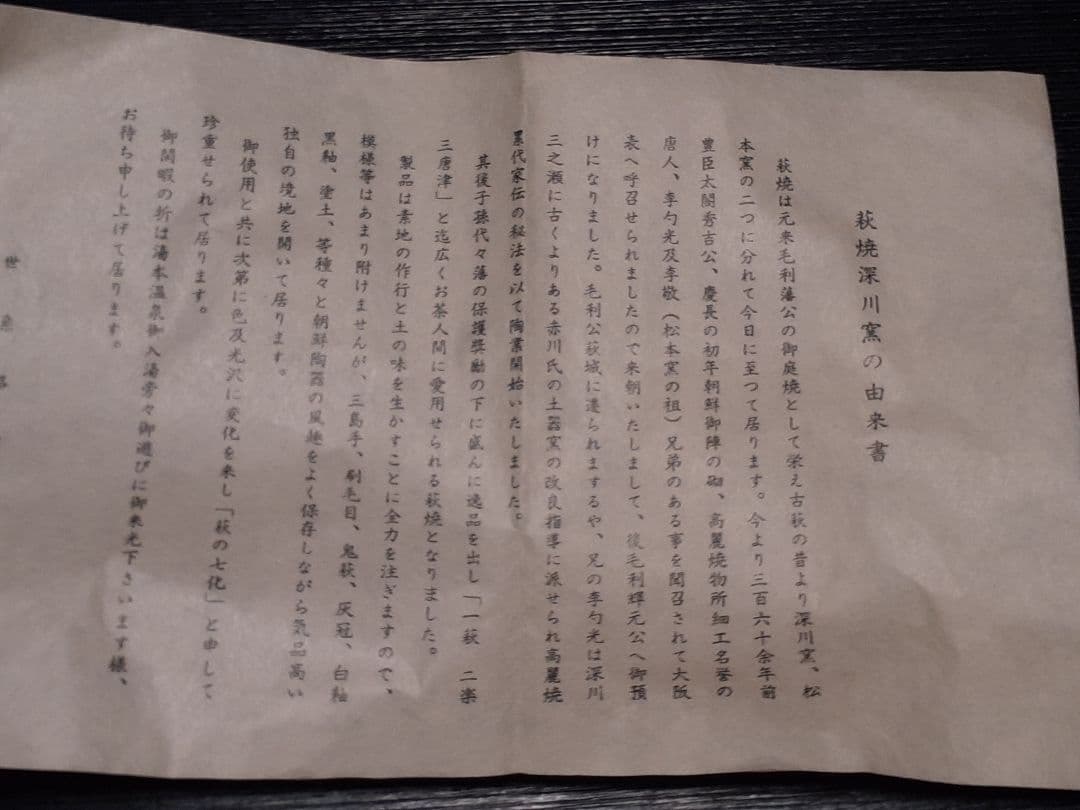 萩焼深川窯の由来書
萩焼は元来毛利藩公の御庭焼として栄え古萩の昔より深川窯、松
本窯の二つに分れて今日に至つて居ります。今より三百六十余年前
豊臣太閤秀吉公、慶長の初年朝鮮御陣の砌、高麗焼物所細工名誉の
唐人、李勺光及李敬（松本窯の祖）兄弟のある事を聞召されて大阪
表へ呼召せられましたので来朝いたしまして、後毛利輝元公へ御預
けになりました。毛利公萩城に遷られまするや、兄の李勺光は深川
三之瀬に古くよりある赤川氏の土器窯の改良指導に派せられ高麗焼
累代家伝の秘法を以て陶業開始いたしました。
其後子孫代々藩の保護奨励の下に盛んに逸品を出し「一萩　二楽
三唐津」と迄広くお茶人間に愛用せられる萩焼となりました。
製品は素地の作行と土の味を生かすことに全力を注ぎますので、
模様等はあまり附けませんが、三島手、刷毛目、鬼萩、灰冠、白釉
黒釉、塗土、等種々と朝鮮陶器の風趣をよく保存しながら気品高い
独自の境地を開いて居ります。
御使用と共に次第に色及光沢に変化を来し「萩の七化」と申して
珍重せられて居ります。
御閑暇の折は湯本温泉御入湯旁々御遊びに御来光下さいます様、
お待ち申し上げて居ります。
世